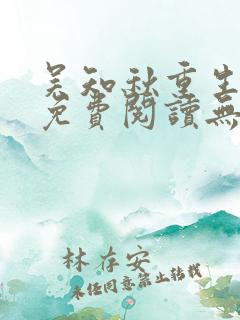 吴知秋重生
免費閱讀無
林存安
未经同意禁止转载